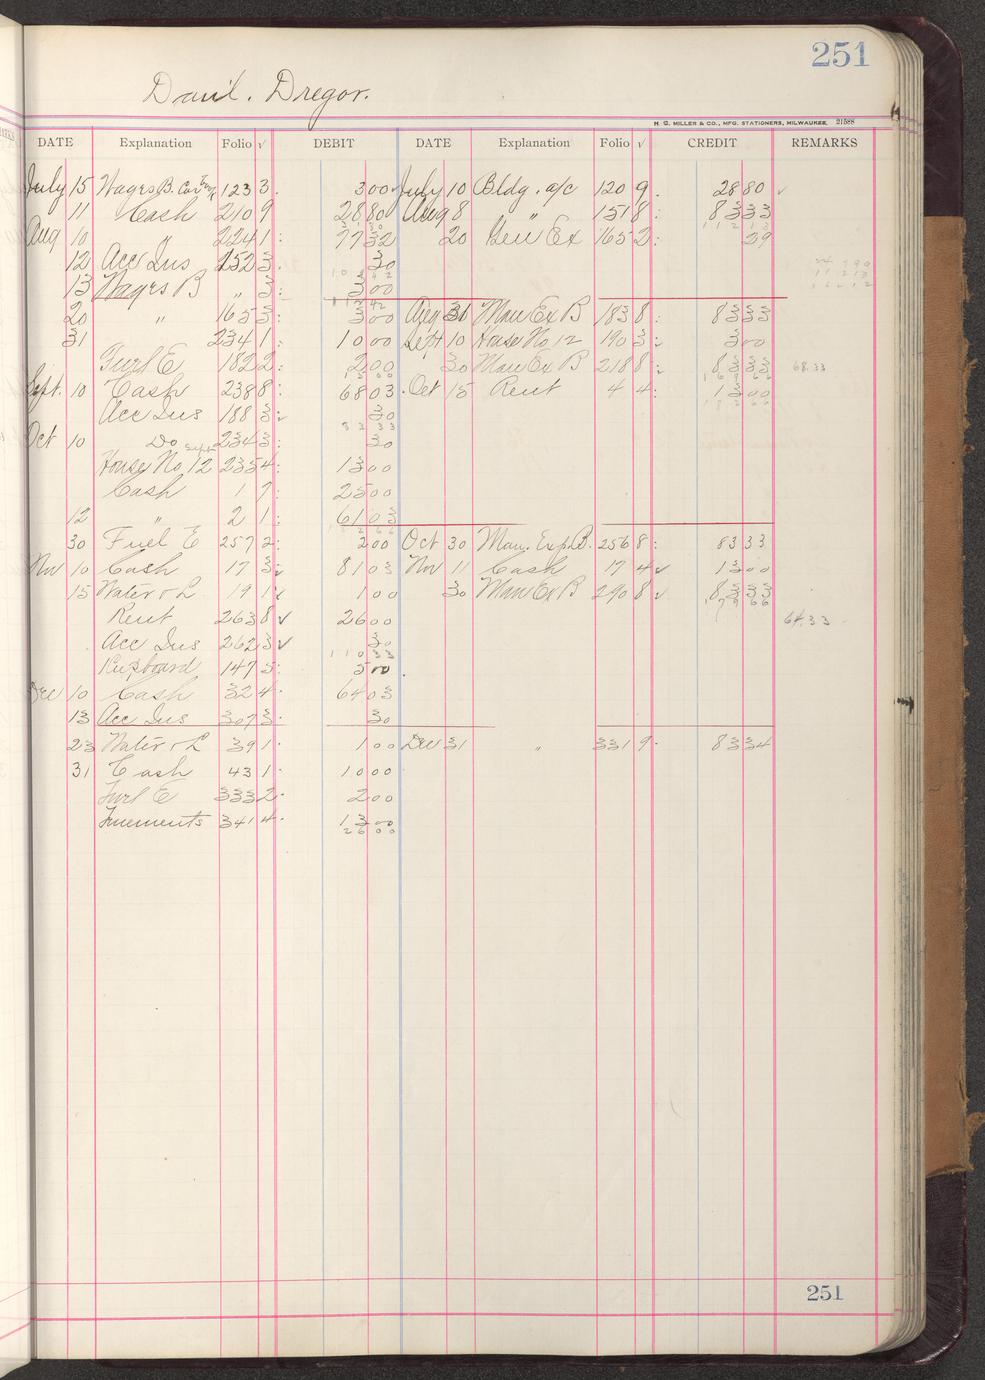 251
Danl. Dregor.
H. G. MILLER & CO., MFG. STATIONERS, MILWAUKEE 21588
DATE Explanation Folio √ DEBIT DATE Explanation Folio √ CREDIT REMARKS
July 15 Wages B. 123 3 3 00 July 10 Bldg. a/c 120 9 28 80
11 Cash 210 9 28 80 Aug 8 " 151 8 83 33
Aug 10 " 224 1 77 32 20 Gen Ex 165 2 29
12 Acc Ins 152 3 30
13 Wages B " 3 3 00
20 " 165 3 3 00 Aug 31 Man Ex B 183 8 83 33
31 234 1 10 00 Sept 10 House No 12 190 3 3 00
Fuel E 182 2 2 00 30 Man Ex B 218 8 83 33 68.33
Sept. 10 Cash 238 8 68 03 Oct 15 Rent 4 4 13 00
Acc Ins 188 3 30
Oct 10 Do Sept 234 3 30
House No 12 235 4 13 00
Cash 1 7 25 00
12 " 2 1 61 03
30 Fuel E 257 2 2 00 Oct 30 Man. Exp. B. 256 8 83 33
Nov 10 Cash 17 3 81 03 Nov 11 Cash 17 4 13 00
15 Water & L 19 1 1 00 30 Man Ex B 290 8 83 33
Rent 263 8 √ 26 00 64.33
Acc Ins 262 3 √ 30
Cupboard 147 5 5 00
Dec 10 Cash 32 4 64 03
13 Acc Ins 307 3 30
23 Water & L 39 1 1 00 Dec 31 " 331 9 83 34
31 Cash 43 1 10 00
Fuel E 333 2 2 00
341 4 13 00
26 00
251